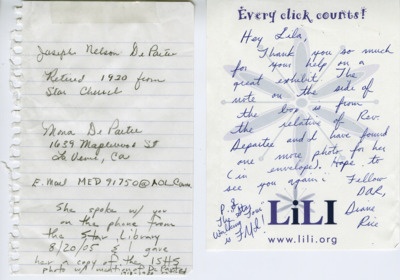 Joseph Nelson De Partee
Retired 1930 from
Star Church
Mona De Partee
1659 Maplewood St
La Verne, Ca
E-Mail MED91750@AOL.Com
She spoke w/ you
on the phone from
the Star Library
8/20/05 & I gave
her a copy of the ISHS
photo w/
Every click counts!
Hey Lila,
Thank you so much
for your help on a
great exhibit. The
note on the side of
the box is from
the relative of Rev.
Departee and I have found
one more photo for her
(in envelope). Hope to
see you again!
Fellow
DAR,
Diane
Rice
P.S.
The
Walking Tour"
is FYI!
LiLI
www.lili.org